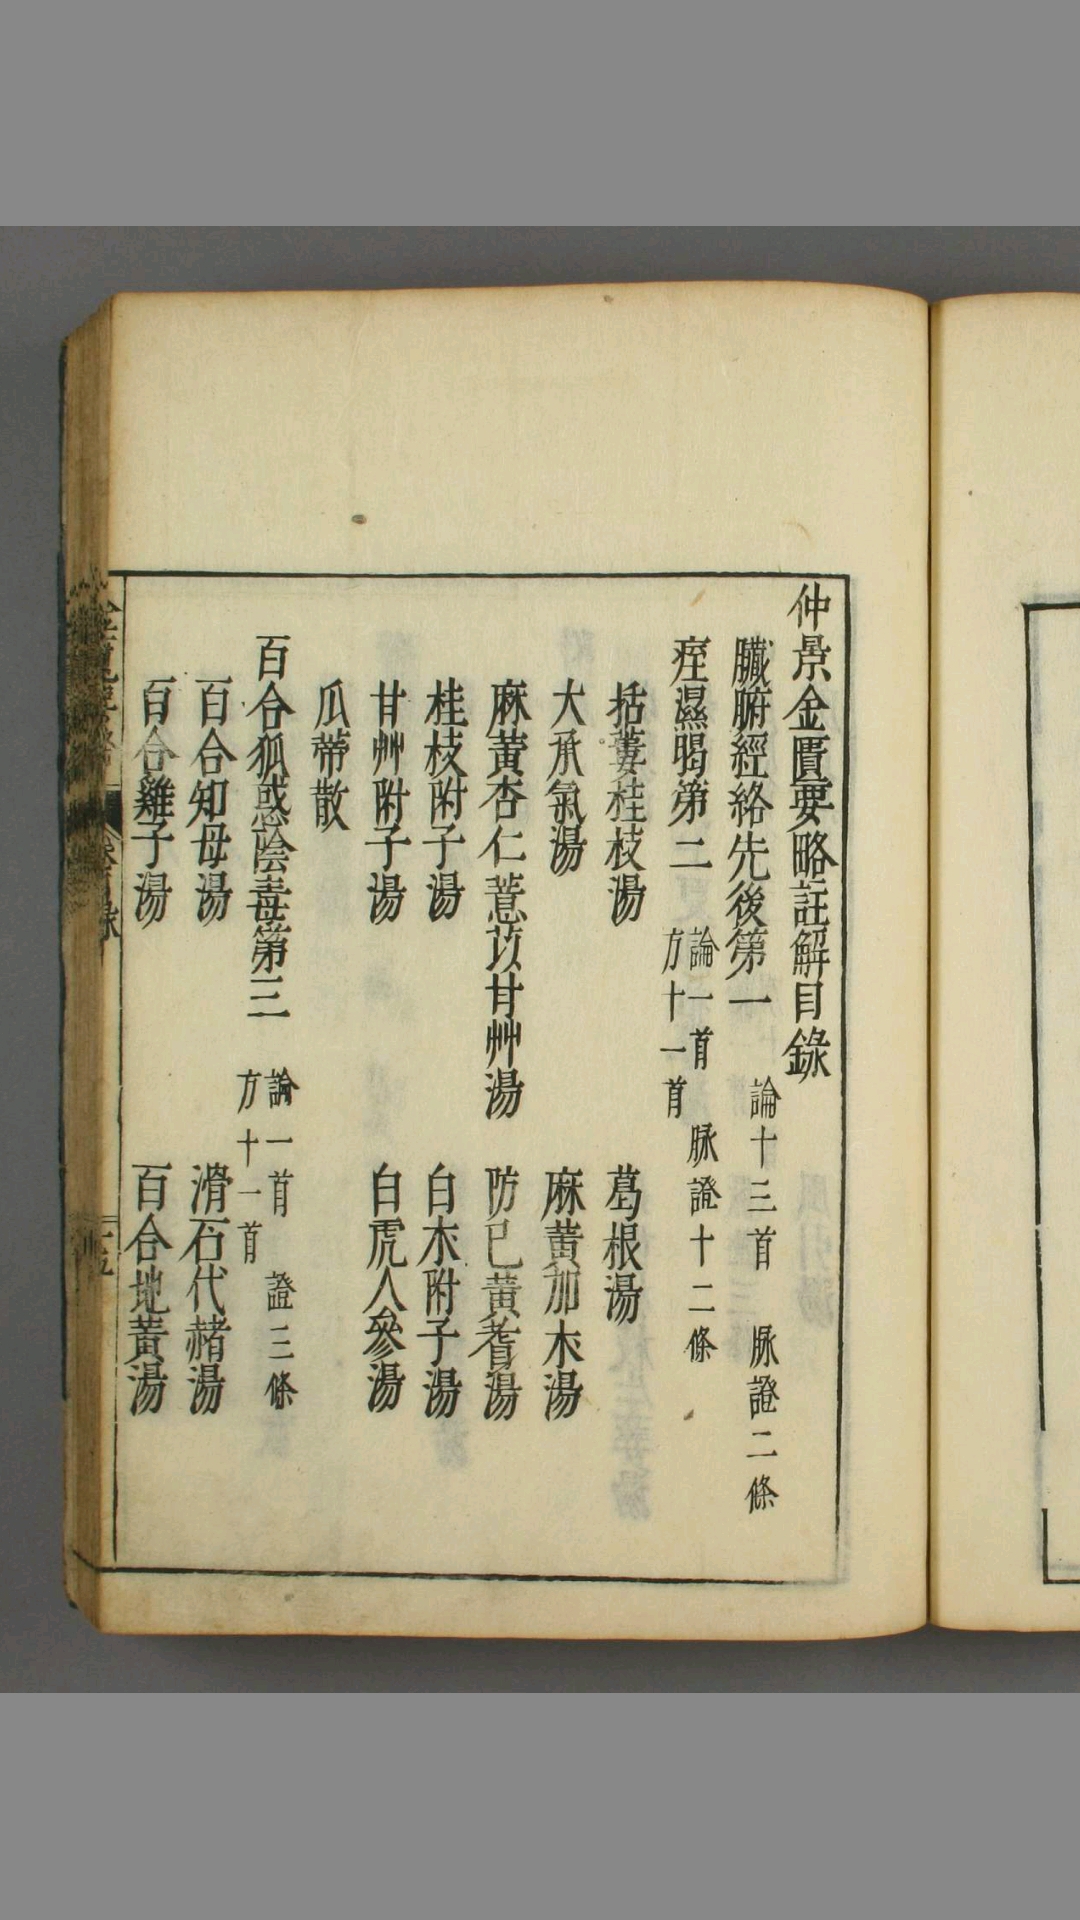 仲景金匱要略註解目錄
臓腑經絡先後第一 論十三首 脉證二條
痓濕暍第二 論一首 脉證十二條 方十一首
括蔞桂枝湯 葛根湯
大承氣湯 麻黄加朮湯
麻黄杏仁薏苡甘艸湯 防已黄耆湯
桂枝附子湯 白朮附子湯
甘艸附子湯 白虎人參湯
瓜蒂散
百合狐惑陰毒第三 論一首 證三條 方十一首
百合知母湯 滑石代赭湯
百合雞子湯 百合地黄湯